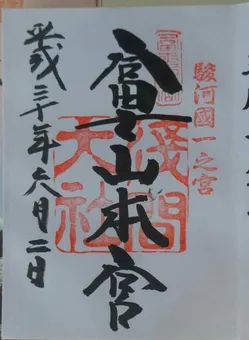 駿河國一之宮
富士山本宮
淺間大社
平成三十年六月二日